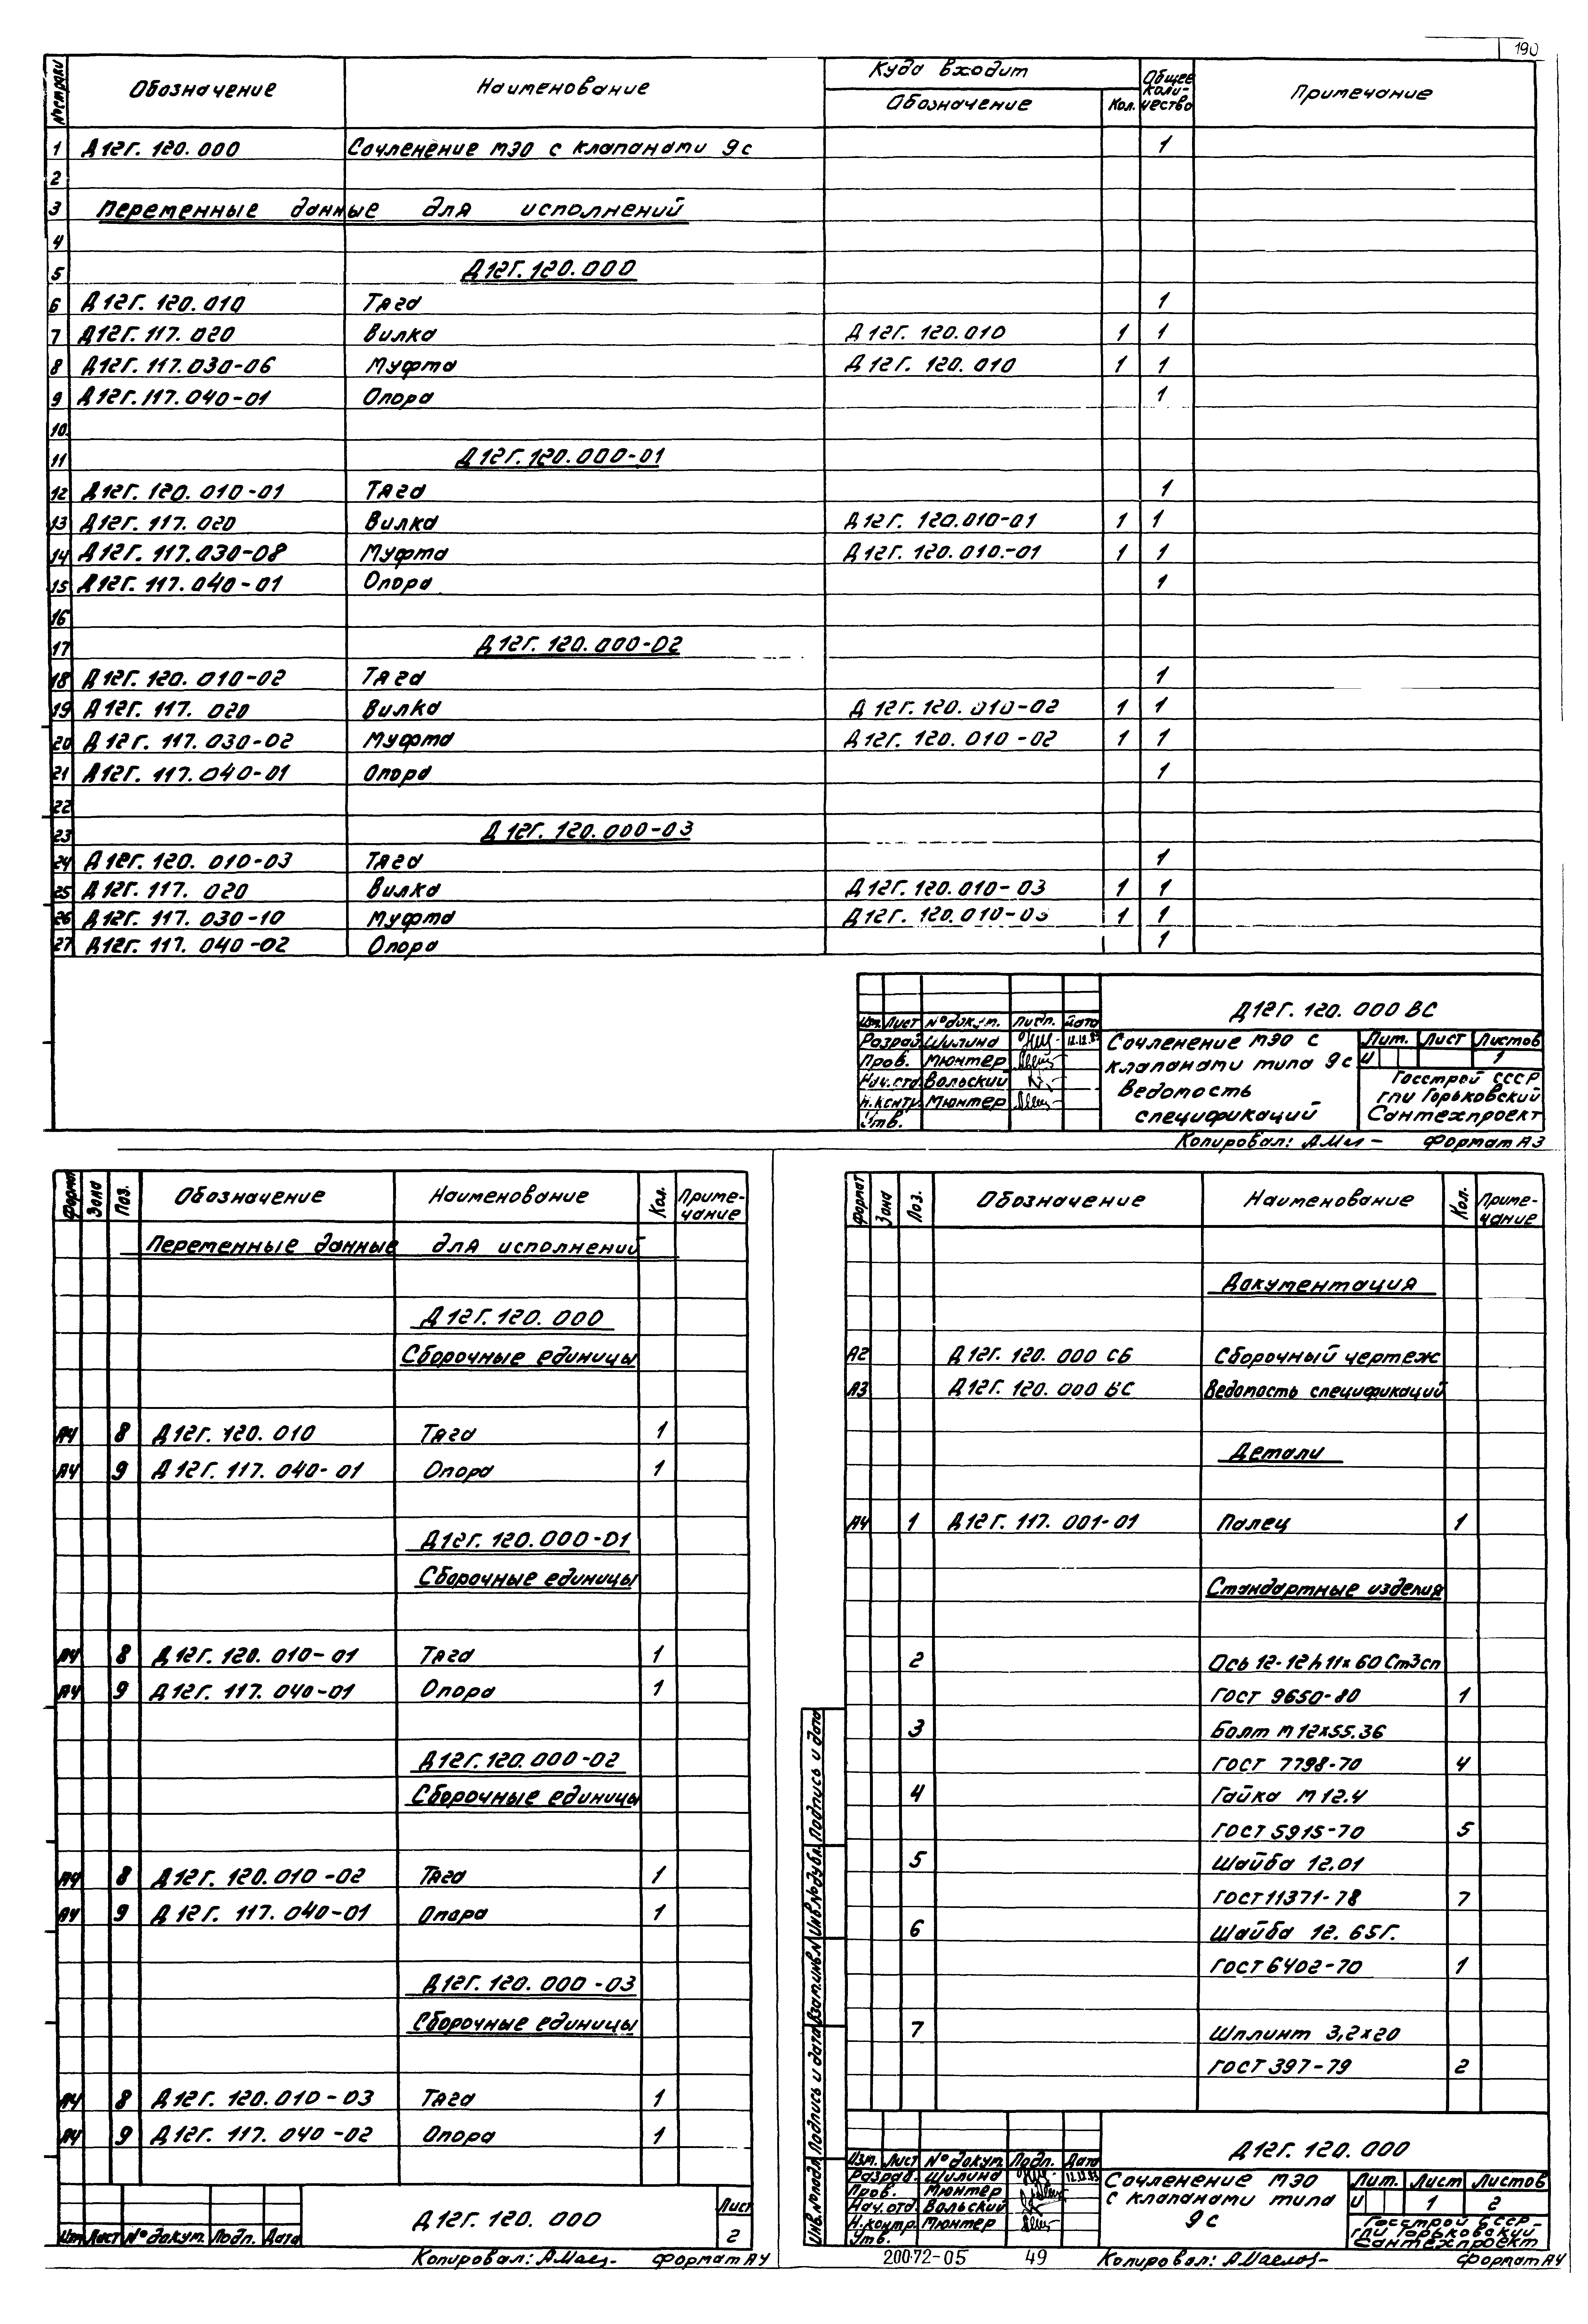 190
№ строки Обозначение Наименование Куда входит Общее количество Примечание
Обозначение Кол.
1 Д12Г. 120.000 Сочленение МЭО с клапанами 9с 1
2
3 Переменные данные для исполнений
4
5 Д12Г.120.000
6 Д12Г. 120.010 Тяга 1
7 Д12Г. 117.020 Вилка Д12Г. 120.010 1 1
8 Д12Г. 117.030-06 Муфта Д12Г. 120.010 1 1
9 Д12Г.117.040-01 Опора 1
10
11 Д12Г.120.000-01
12 Д12Г. 120.010-01 Тяга 1
13 Д12Г. 117.020 Вилка Д12Г. 120.010-01 1 1
14 Д12Г. 117.030-08 Муфта Д12Г. 120.010.-01 1 1
15 Д12Г. 117.040-01 Опора 1
16
17 Д12Г. 120.000-02
18 Д12Г. 120.010-02 Тяга 1
19 Д12Г. 117. 020 Вилка Д12Г.120.010-02 1 1
20 Д12Г. 117.030-02 Муфта Д12Г. 120.010-02 1 1
21 Д12Г. 117.040-01 Опора 1
22
23 Д12Г. 120.000-03
24 Д12Г. 120. 010-03 Тяга 1
25 Д12Г. 117. 020 Вилка Д12Г.120.010-03 1 1
26 Д12Г. 117. 030-10 Муфта Д12Г. 120.010-03 1 1
27 Д12Г. 117. 040-02 Опора 1
Д12Г. 120. 000 ВС
Изм. Лист № докум. Подп. Дата
Разраб. Шилина 12.12.83
Пров. Мюнтер
Нач.отд. Вольский
Н.контр. Мюнтер
Утв.
Сочленение МЭО с
клапанами типа 9с
Ведомость
спецификаций
Лит. Лист Листов
И 1
Госстрой СССР
ГПИ Горьковский
Сантехпроект
Копировал: Формат А3
Формат Зона Поз. Обозначение Наименование Кол. Примечание
Переменные данные для исполнений
Д12Г.120.000
Сборочные единицы
А4 8 Д12Г. 120.010 Тяга 1
А4 9 Д12Г. 117. 040-01 Опора 1
Д12Г.120.000-01
Сборочные единицы
А4 8 Д12Г. 120. 010-01 Тяга 1
А4 9 Д12Г. 117. 040-01 Опора 1
Д12Г.120.000-02
Сборочные единицы
А4 8 Д12Г. 120.010-02 Тяга 1
А4 9 Д12Г. 117. 040-01 Опора 1
Д12Г.120.000-03
Сборочные единицы
А4 8 Д12Г. 120.010-03 Тяга 1
А4 9 Д12Г. 117. 040-02 Опора 1
Изм Лист № докум. Подп. Дата
Д12Г. 120. 000
Лист
2
Копировал: Формат А4
Формат Зона Поз. Обозначение Наименование Кол. Примечание
Документация
А2 Д12Г. 120. 000 СБ Сборочный чертеж
А3 Д12Г. 120. 000 ВС Ведомость спецификаций
Детали
А4 1 Д12Г. 117. 001-01 Палец 1
Стандартные изделия
2 Ось 12-12h11х60 Ст3сп
ГОСТ 9650-80 1
3 Болт М12х55.36
ГОСТ 7798-70 4
4 Гайка М12.4
ГОСТ 5915-70 5
5 Шайба 12.01
ГОСТ 11371-78 7
6 Шайба 12. 65Г.
ГОСТ 6402-70 1
7 Шплинт 3,2х20
ГОСТ 397-79 2
Инв.№подл. Подпись и дата Взам.инв.№ Инв.№дубл. Подпись и дата
Д12Г. 120.000
Изм. Лист № докум. Подп. Дата
Разраб. Шилина 12.12.83
Пров. Мюнтер
Нач.отд. Вольский
Н.контр. Мюнтер
Утв.
Сочленение МЭО
с клапанами типа
9с
Лит. Лист Листов
И 1 2
Госстрой СССР
ГПИ Горьковский
Сантехпроект
20072-05 49 Копировал: Формат А4